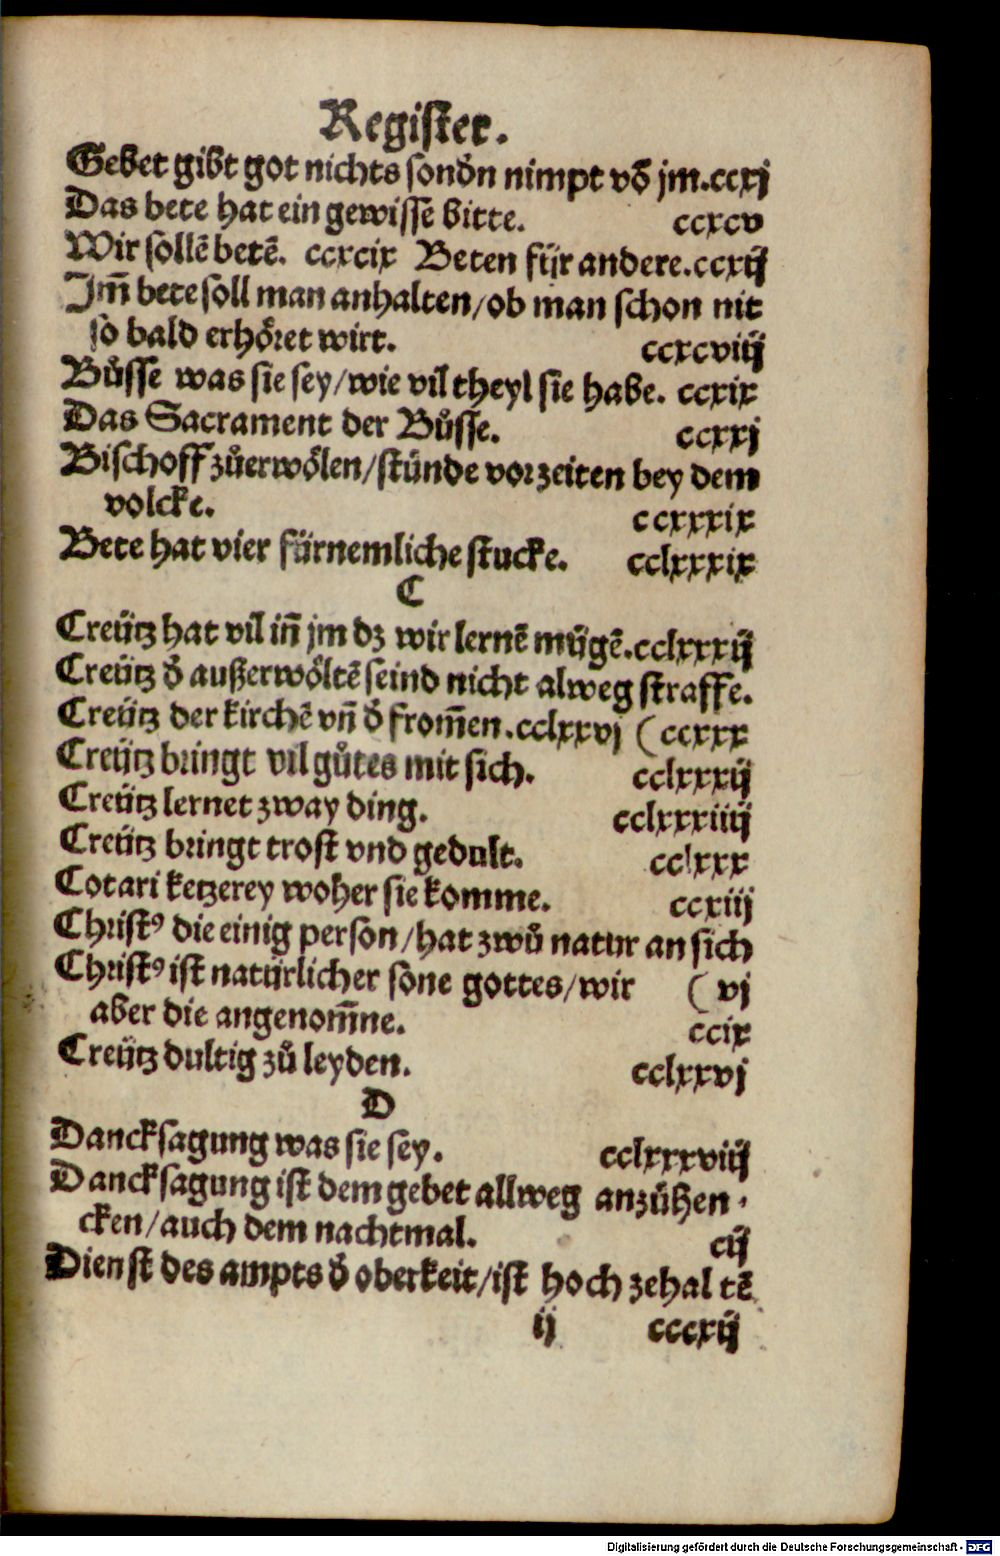 Register.
Gebet gibt got nichts sond̄n nimpt vō jm. ccxj
Das bete hat ein gewisse bitte. ccxcv
Wir sollē betē. ccxcix Beten für andere. ccxij
Jm̄ bete soll man anhalten/ob man schon nit
so bald erhöret wirt. ccxcviiij
Bůsse was sie sey/wie vil theyl sie habe. ccxix
Das Sacrament der Bůsse. ccxxj
Bischoff zůerwölen/stünde vorzeiten bey dem
volcke. ccxxxix
Bete hat vier fürnemliche stucke. cclxxxix
C
Creütz hat vil in̄ jm dz wir lernē mügē. cclxxxij
Creütz d̄ außerwöltē seind nicht alweg straffe.
Creütz der kirchē vn̄ d̄ from̄en. cclxxvj (ccxxx
Creütz bringt vil gůtes mit sich. cclxxxij
Creütz lernet zway ding. cclxxxiiij
Creütz bringt trost vnd gedult. cclxxx
Cotari ketzerey woher sie komme. ccxiij
Christꝰ die einig person/hat zwů natur an sich
Christꝰ ist natürlicher sone gottes/wir (vj
aber die angenom̄ne. ccix
Creütz dultig zů leyden. cclxxvj
D
Dancksagung was sie sey. cclxxxviij
Dancksagung ist dem gebet allweg anzůhen-
cken/auch dem nachtmal. cij
Dienst des ampts d̄ oberkeit/ist hoch zehaltē
ij cccxij
Digitalisierung gefördert durch die Deutsche Forschungsgemeinschaft - DFG